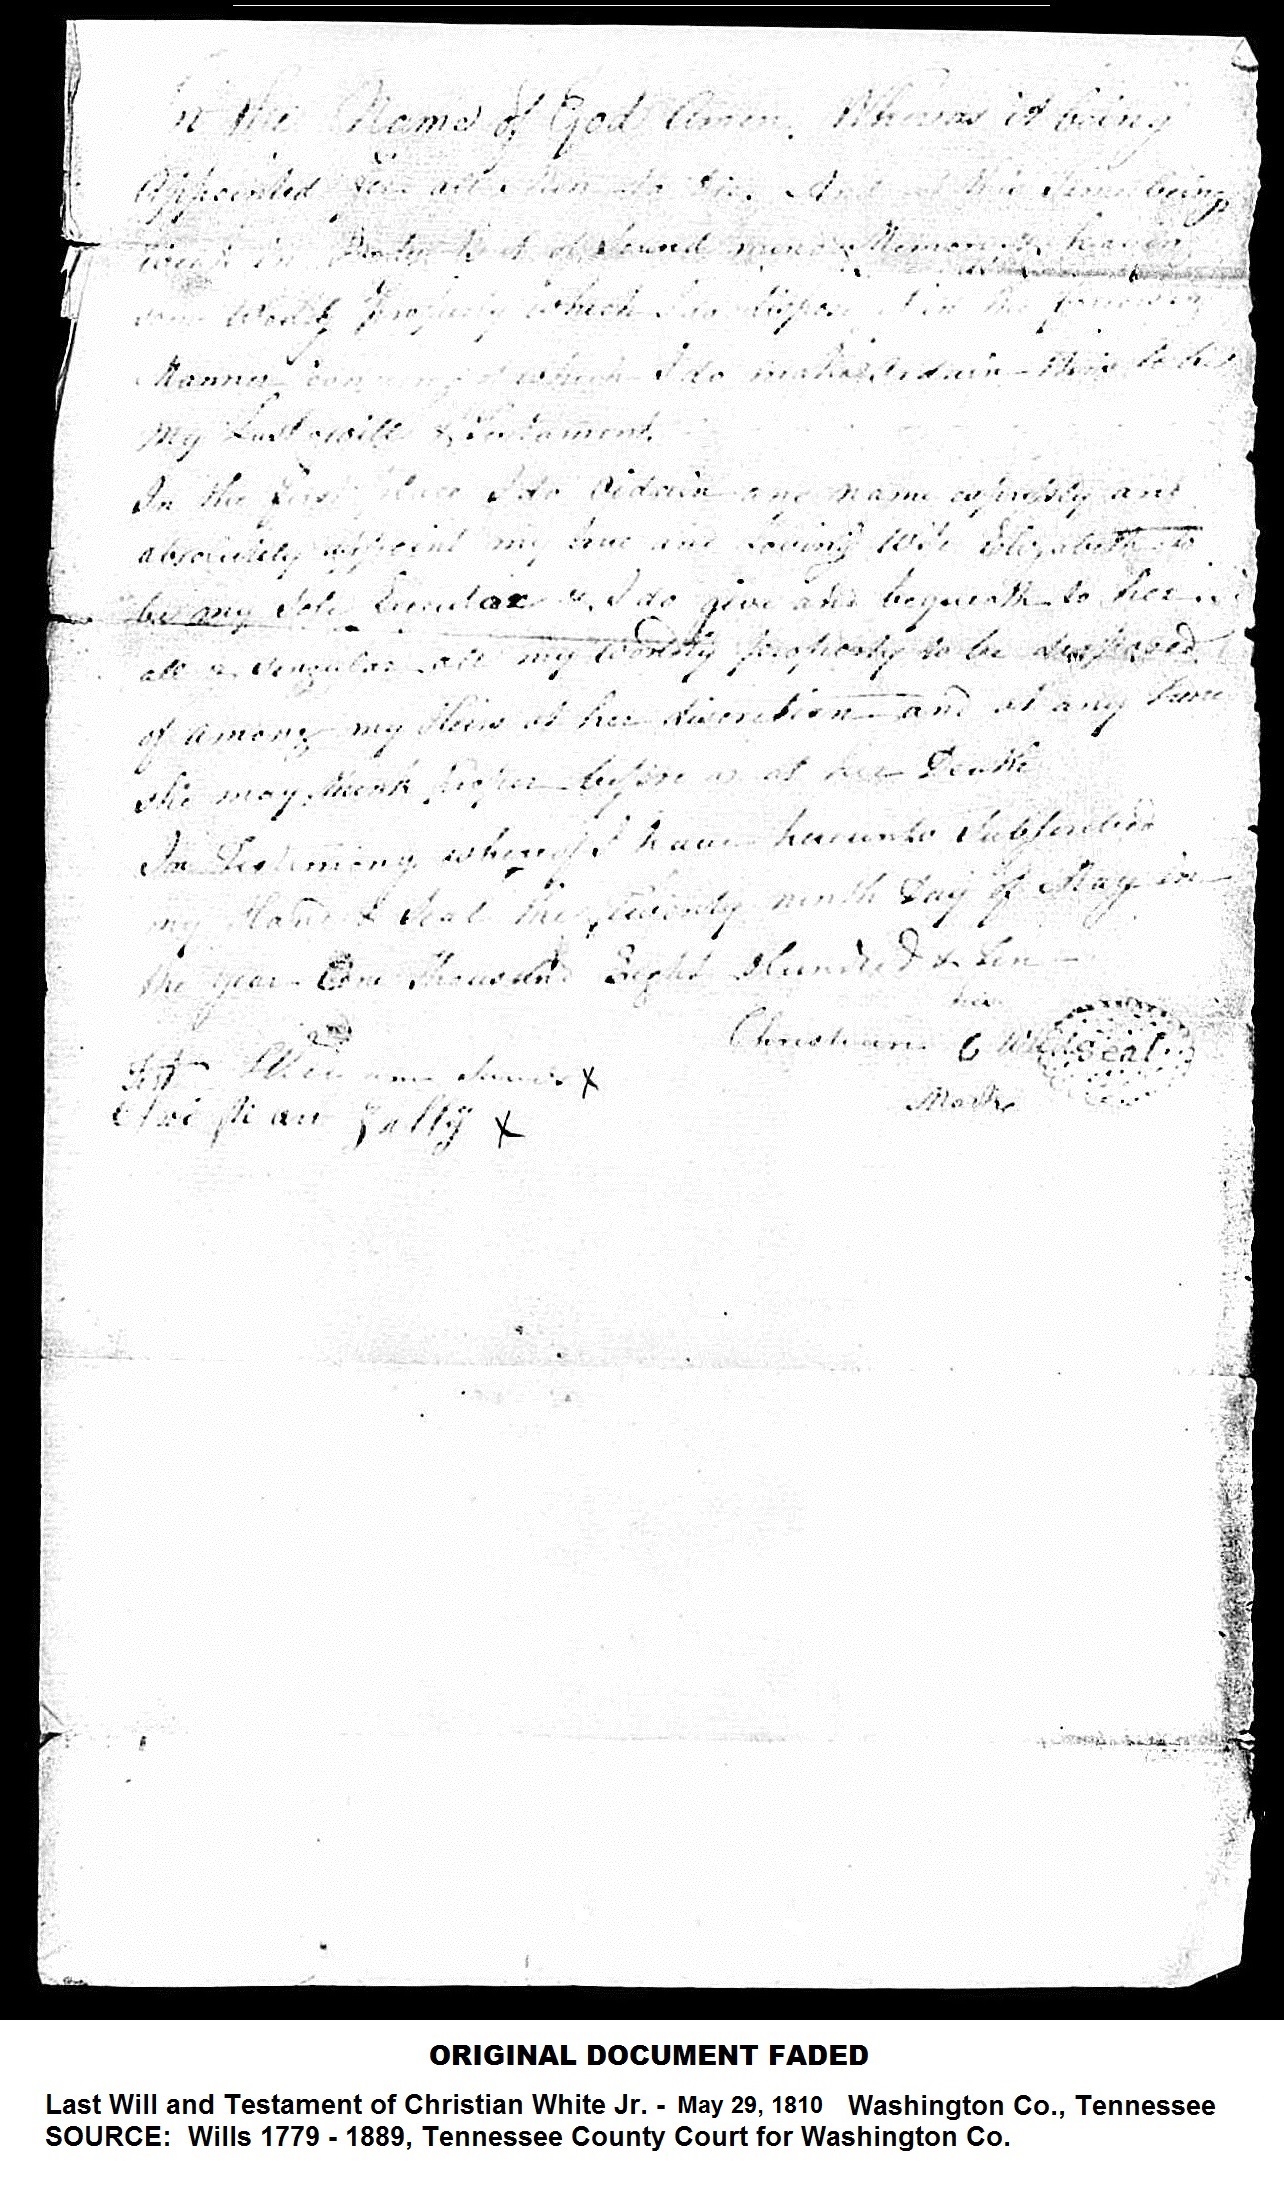 In the Name of God Amen. Whereas it being
Appointed for all Men to Die. And at this time being
weak in Body but of Sound mind & Memory & having
some Wordly property which I do dispose of in the following
Manner which I do make & ordain this to be
My Last will & Testament.
In the first place I do ordain and name expressly and
absolutely appoint my true and Loving Wife Elizabeth to
be my Sole Executax & I do give and bequeath to her
all & Singular all my wordly property to be desposed
of among my Heirs at her discretion and at any time
She may think proper before or at her Death
In Testimony whereof I have hereunto Subscribed
my Hand & Seal this twenty ninth Day of May in
the year One Thousand Eight Hundred & Ten
his
Christian C Seal
Mark
Test X
Christian X
ORIGINAL DOCUMENT FADED
Last Will and Testament of Christian White Jr. - May 29, 1810 Washington Co., Tennessee
SOURCE: Wills 1779 - 1889, Tennessee County Court for Washington Co.